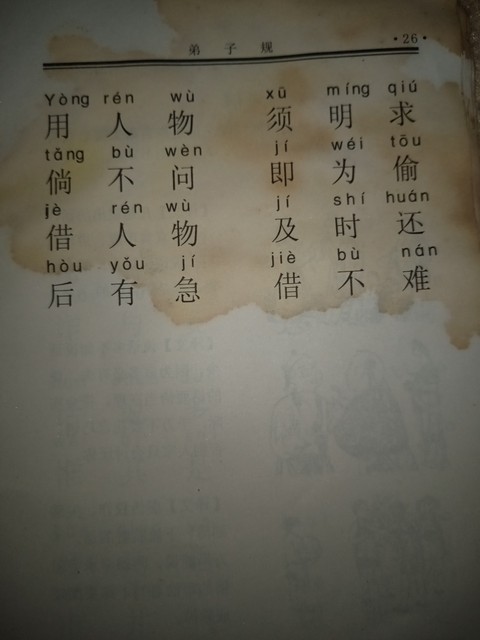 弟子规 ·26·
Yòng rén wù xū míng qiú
用人物 须明求
tǎng bù wèn jí wéi tōu
倘不问 即为偷
jè rén wù jí shí huán
借人物 及时还
hòu yǒu jí jiè bù nán
后有急 借不难